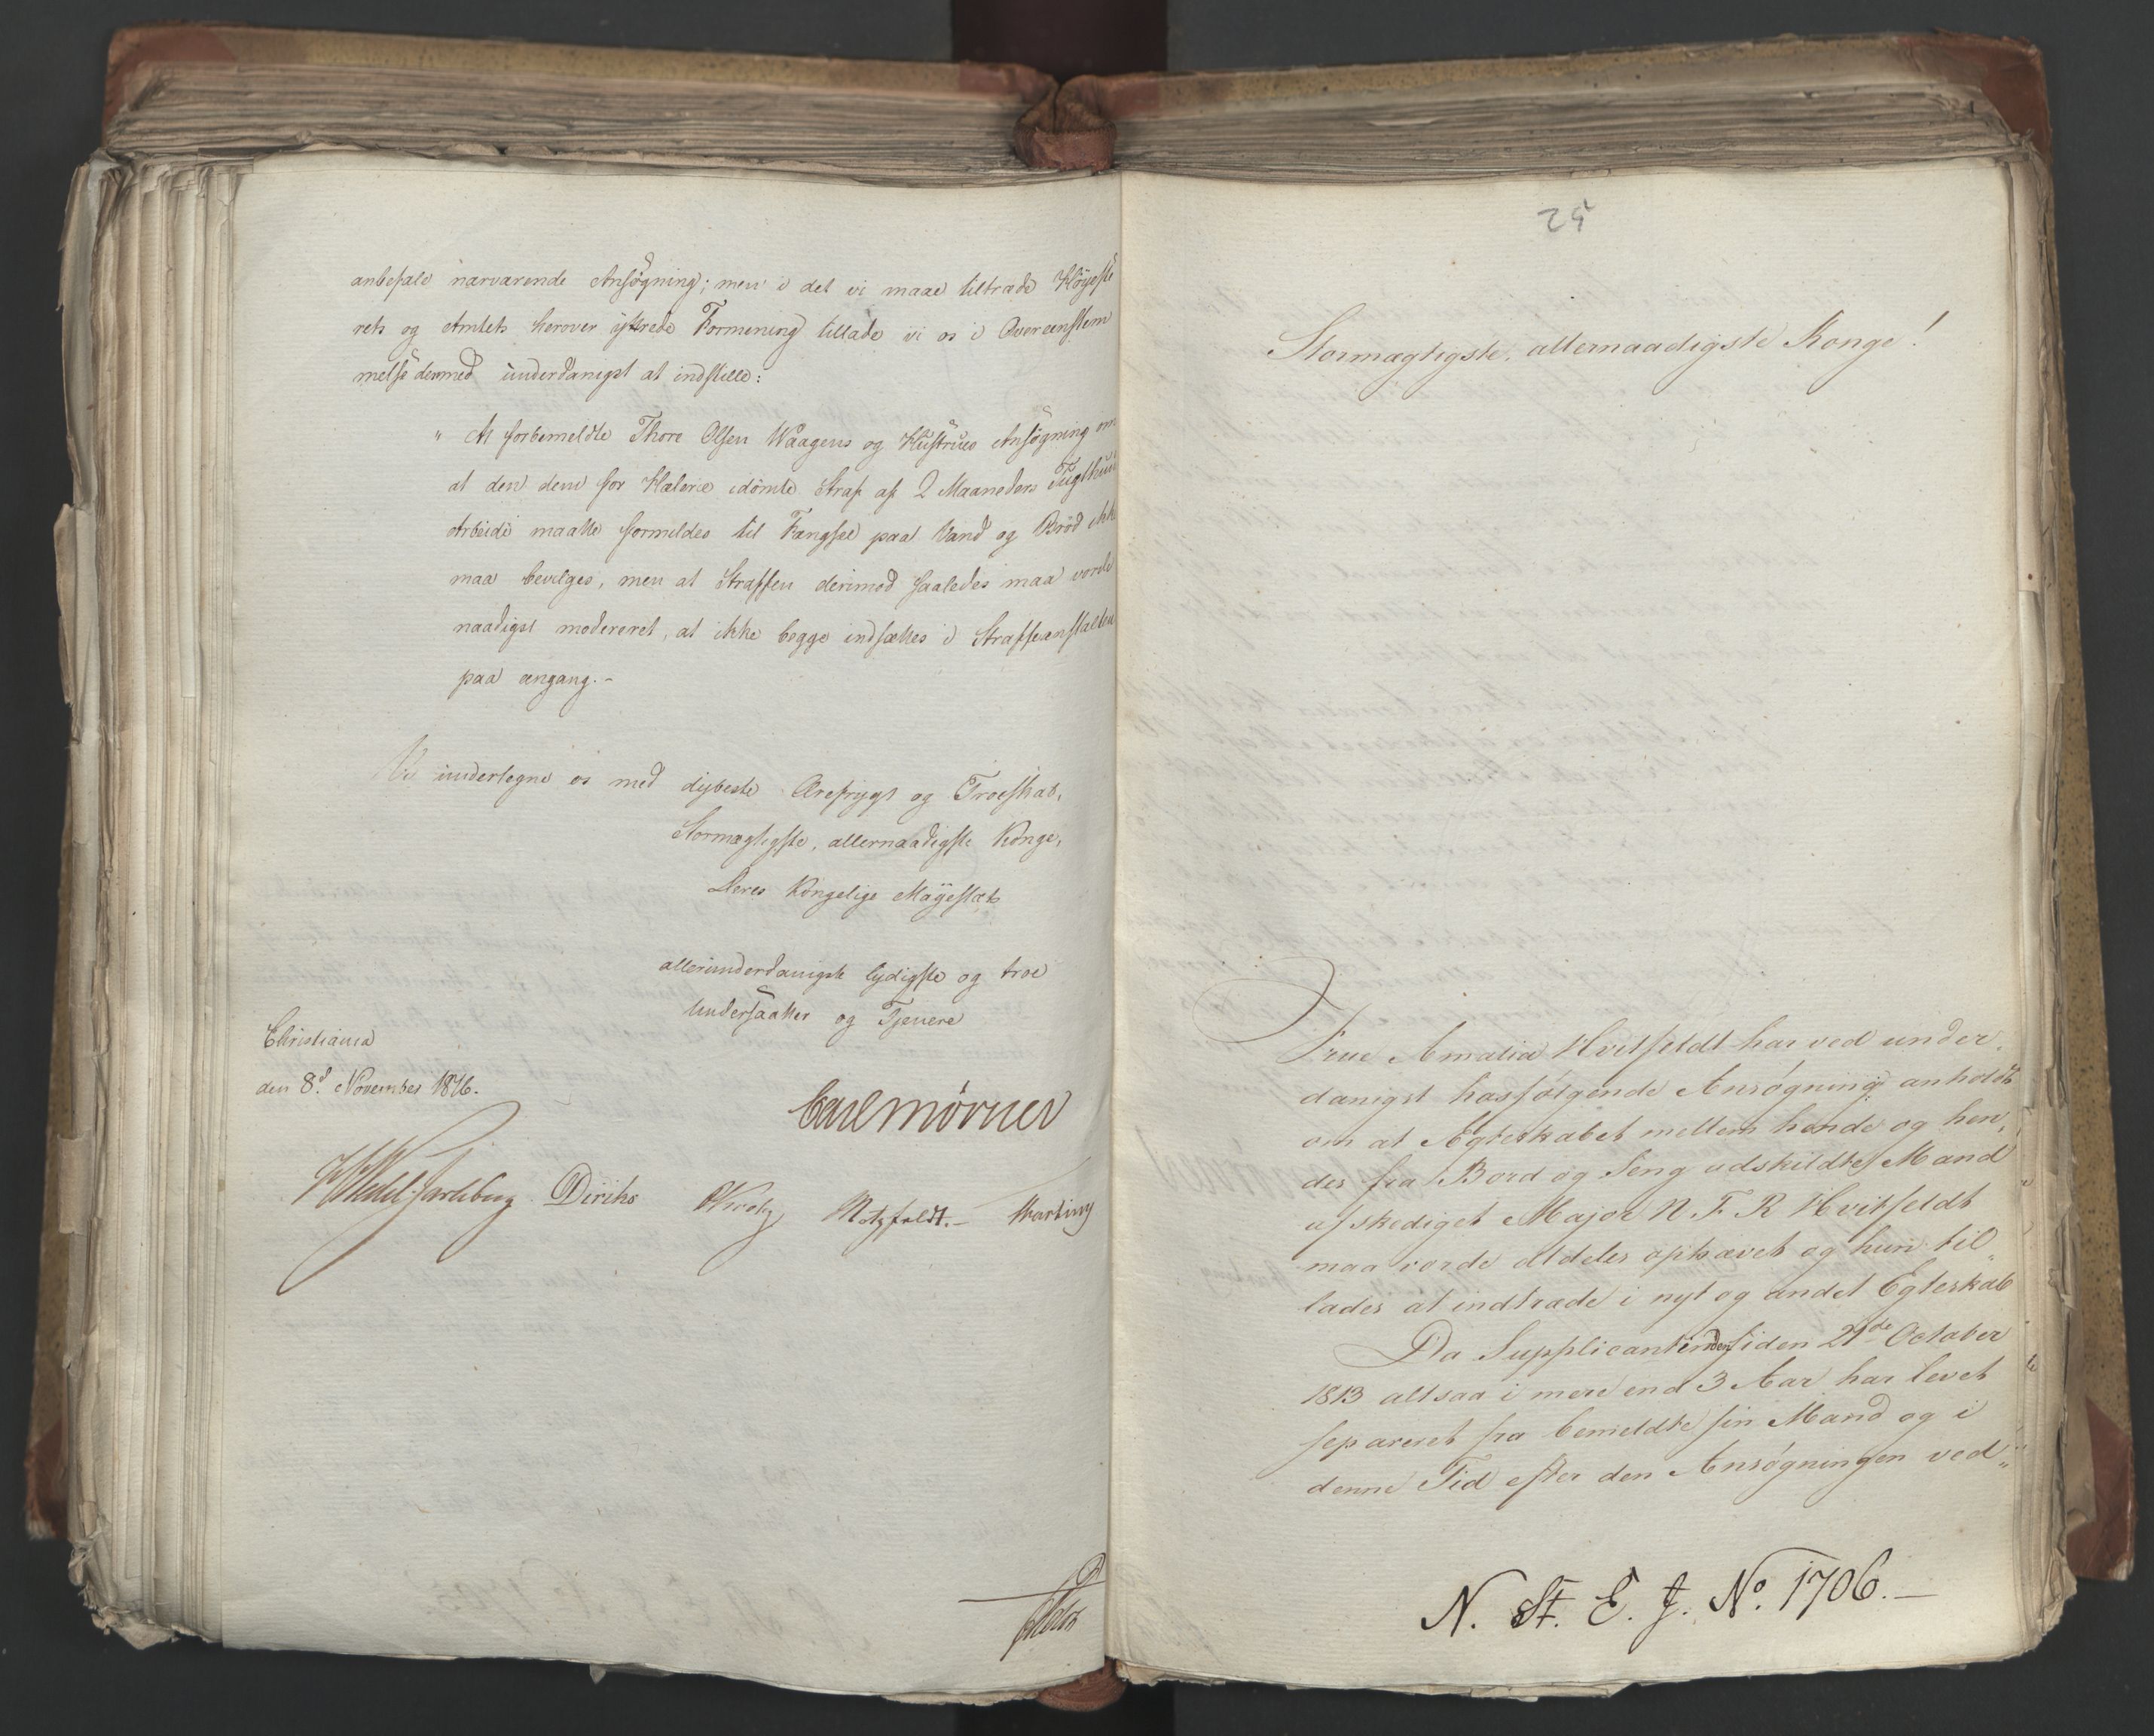 anbefale nærværende Ansøgning; men i det vi maae tiltræde Høyeste
rets og Amtets herover yttrede Formening tillade vi os i Overeenstem
melse dermed underdanigst at indstille:
" At forbemeldte Thore Olsen Waagens og Hustrues Ansøgning om
at den dem for Hælerie idømte Straf af 2 Maaneders Tugthuus
Arbeide maatte formildes til Fængsel paa Vand og Brød ikke
maa bevilges, men at Straffen derimod saaledes maa vorde
naadigst modereret, at ikke begge indsættes i Straffeanstalten
paa engang.-
Vi undertegne os med dybeste Ærefrygt og Troeskab,
Stormægtigste, allernaadigste Konge,
Deres Kongelige Mayestæts
allerunderdanigste lydigste og troe
Undersaatter og Tjenere
Christiania
den 8d November 1816.
Carl Mörner
HWedel-Jarlsberg Diriks Krog Motzfeldt.- Hartwig
25
Stormægtigste, allernaadigste Konge!
Frue Amalia Hvitfeldt har ved under,
danigst hosfølgende Ansøgning anholdt
om at Ægteskabet mellem hende og hen,
des fra Bord og Seng adskildte Mand
afskediget Major N. F. R Hvitfeldt
maa vorde aldeles ophævet og hun til„
lades at indtræde i nyt og andet Egteskab
Da Supplicantinden siden 21de October
1813 altsaa i mere end 3 Aar har levet
separeret fra bemeldte sin Mand og i
denne Tid efter den Ansøgningen ved„
N. St. E. J. No. 1706.-